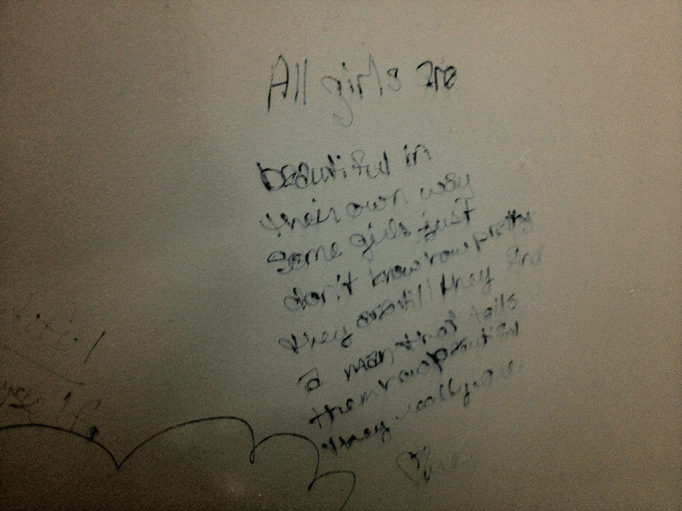 All girls are
beautiful in
their own way
some girls just
don't know how pretty
they are till they find
a man that tells
them how beautiful
they really are